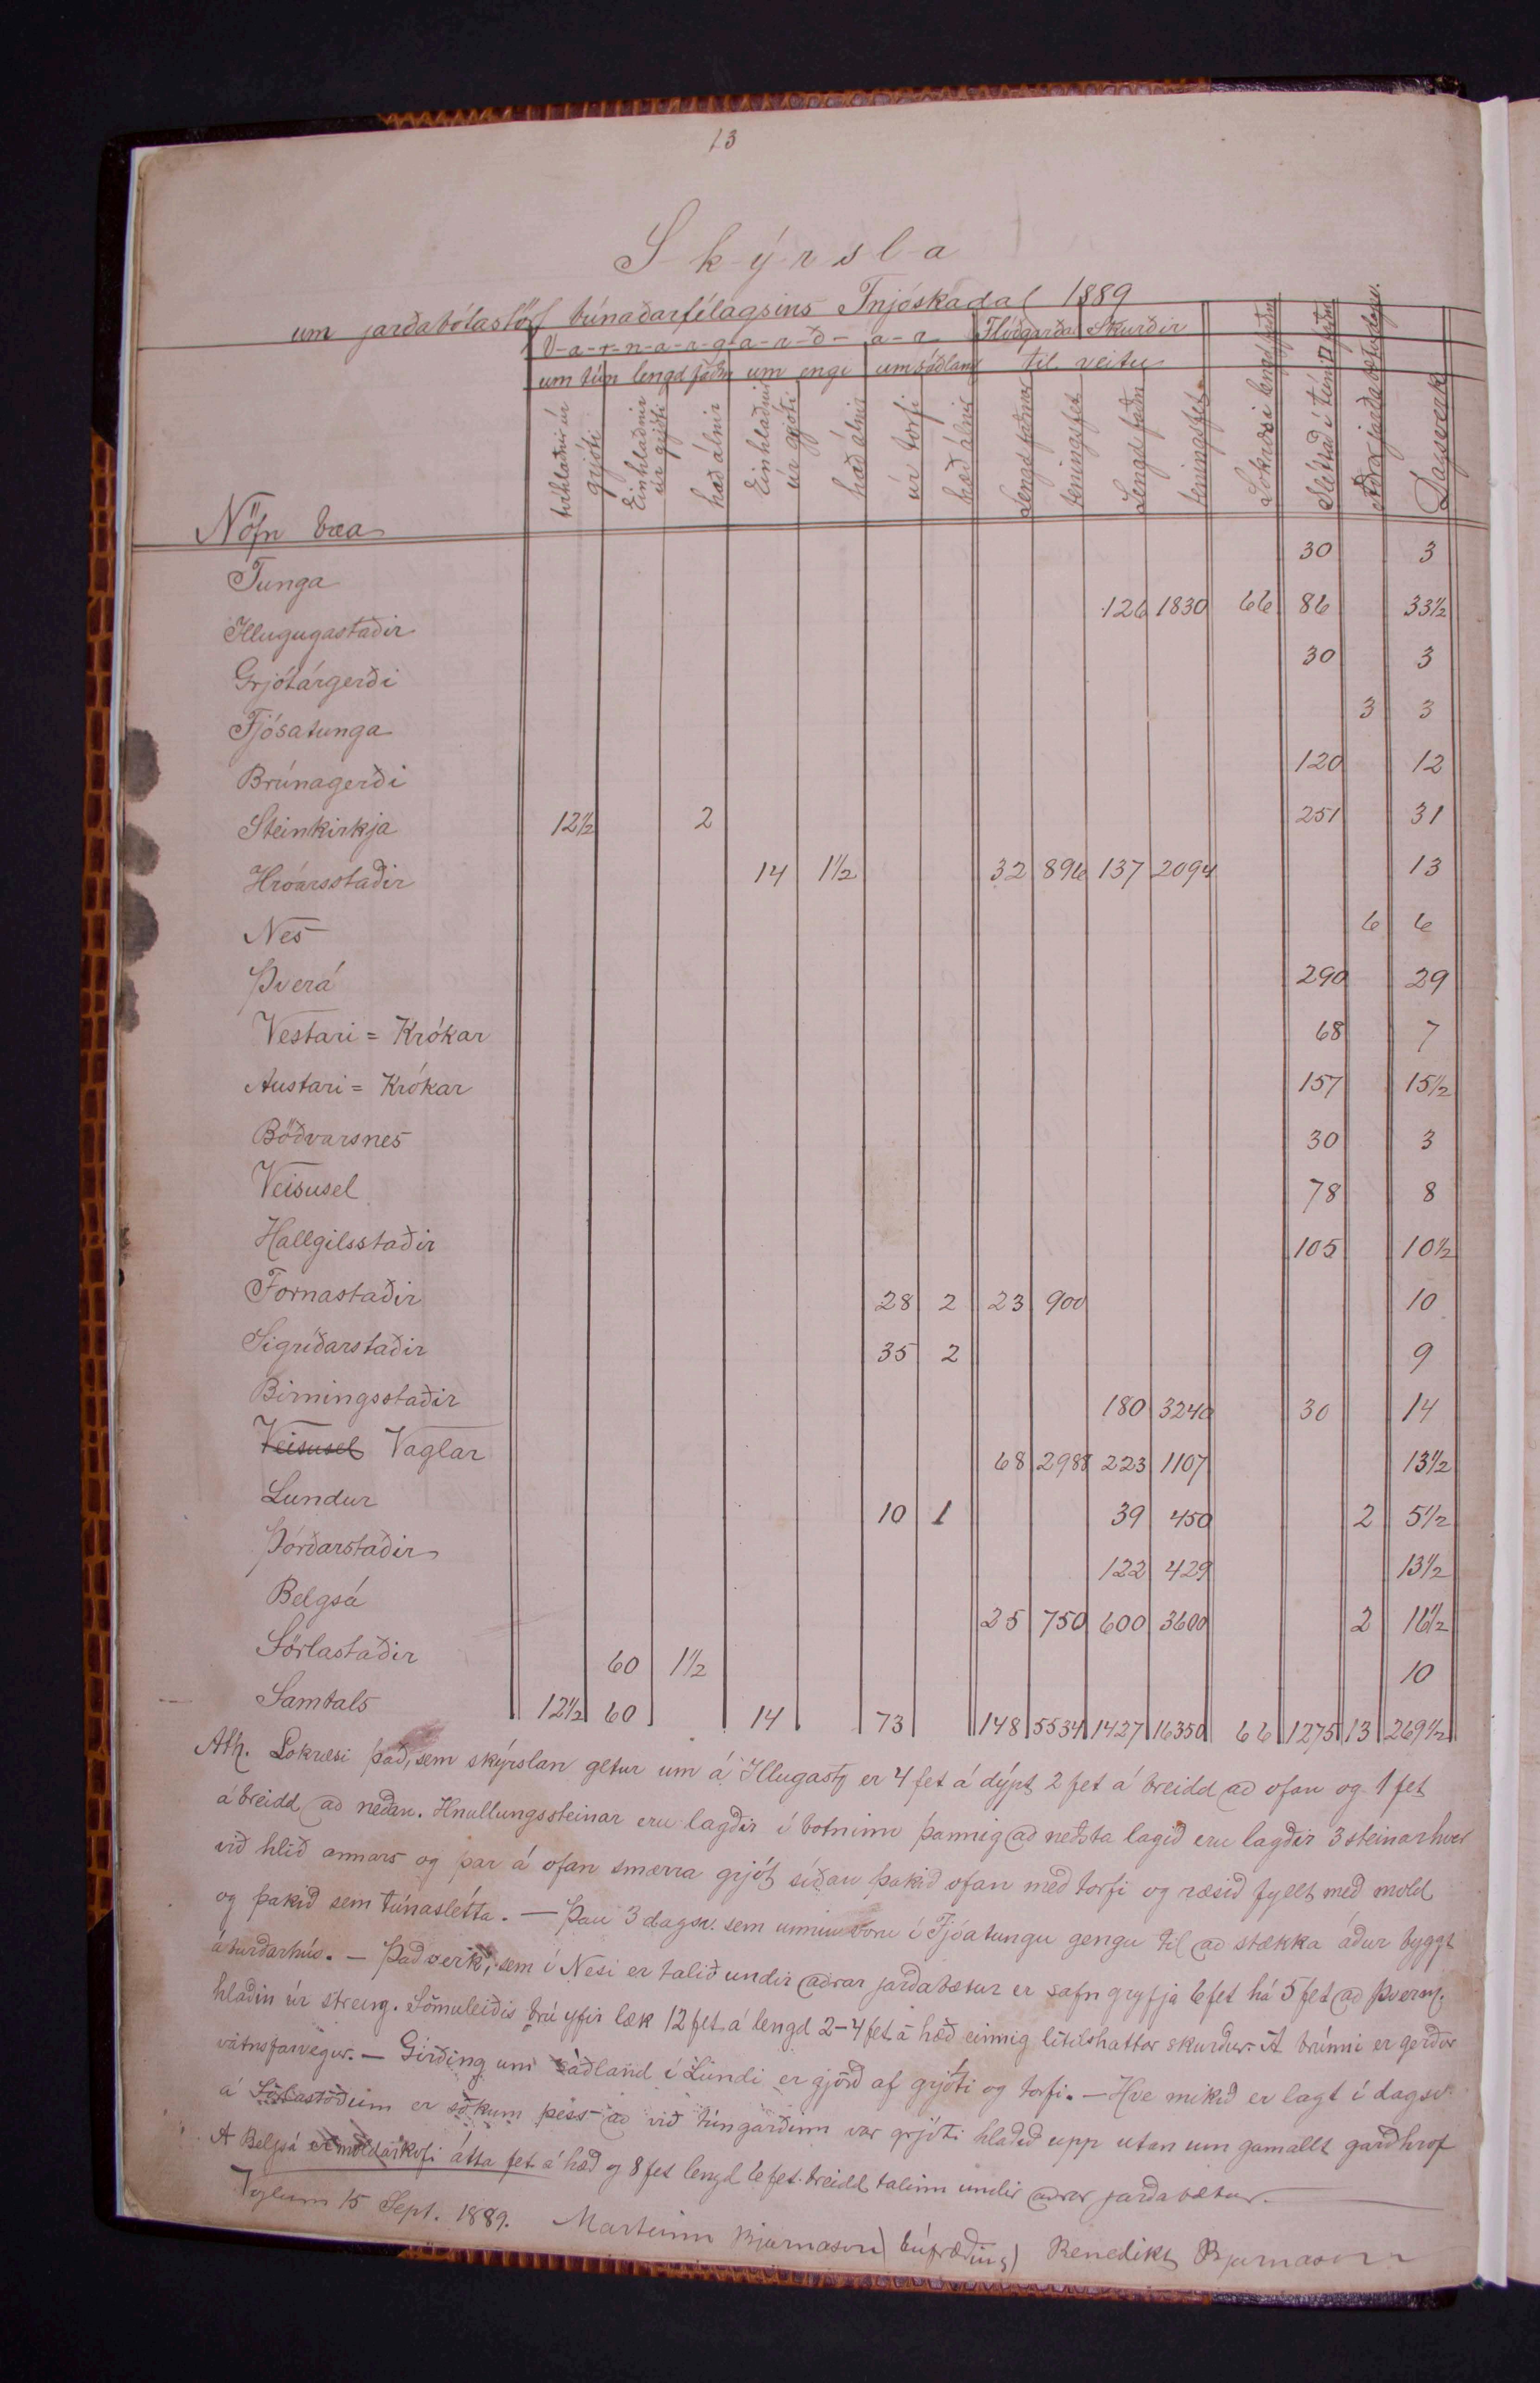 13
Skýrsla
um jarðabótastörf búnaðarfélagsins Fnjóskadal 1889
V-a-r-n-a-r-g-a-r-ð-a-r Flóðgarðar Skurðir
um tún lengd faðm um engi um sáðland til veitu
Nöfn bæa tvíhlaðnir úr grjóti Einhlaðnir úr grjóti hæð álnir Einhlaðnir úr grjóti hæð álnir úr torfi hæð álnir Lengd faðmar teningsfet Lengd faðm teningsfet Lokræsi lengd faðm Sléttað í túni □ faðm Aðrar jarðabætur dagv. Dagsverk
Tunga 30 3
Illugugastaðir 126 1830 66 86 33½
Grjótárgerði 30 3
Fjósatunga 3 3
Brúnagerði 120 12
Steinkirkja 12½ 2 251 31
Hróarsstaðir 14 1½ 32 896 137 2094 13
Nes 6 6
Þverá 290 29
Vestari = Krókar 68 7
Austari = Krókar 157 15½
Böðvarsnes 30 3
Veisusel 78 8
Hallgilsstaðir 105 10½
Fornastaðir 28 2 23 900 10
Sigríðarstaðir 35 2 9
Birningsstaðir 180 3240 30 14
Veisusel Vaglar 68 2988 223 1107 13½
Lundur 10 1 39 450 2 5½
Þórðarstaðir 122 429 13½
Belgsá 25 750 600 3600 2 16½
Sörlastaðir 60 1½ 10
Samtals 12½ 60 14 73 148 5534 1427 16350 66 1275 13 269½
Ath. Lokræsi það, sem skýrslan getur um á Illugast. er 4 fet á dýpt 2 fet á breidd að ofan og 1 fet
á breidd að neðan. Hnullungssteinar eru lagðir í botninn þannig að neðsta lagið eru lagðir 3 steinar hver
við hlið annars og þar á ofan smærra grjót síðan þakið ofan með torfi og ræsið fyllt með mold
og þakið sem túnaslétta. — Þau 3 dagsv. sem unnin voru í Fjóatungu gengu til að stækka áður byggt
áburðarhús. — Það verk, sem í Nesi er talið undir aðrar jarðabætur er safngryfja 6 fet há 5 fet að þverm.
hlaðin úr streng. Sömuleiðis brú yfir læk 12 fet á lengd 2-4 fet á hæð einnig lítilsháttar skurður. Á brúnni er gerður
vatnsfarvegur. — Girðing um sáðland í Lundi er gjörð af grjóti og torfi. — Hve mikið er lagt í dagsv.
á Sörlastöðum er sökum þess að við túngarðinn var grjóti hlaðið upp utan um gamallt garðhrof
A Belgsá er moldarkofi átta fet á hæð og 8 fet lengd 6 fet breidd talinn undir aðrar jarðabætur.
Vöglum 15 Sept. 1889. Marteinn Bjarnason (búfræðing) Benedikt Bjarnason